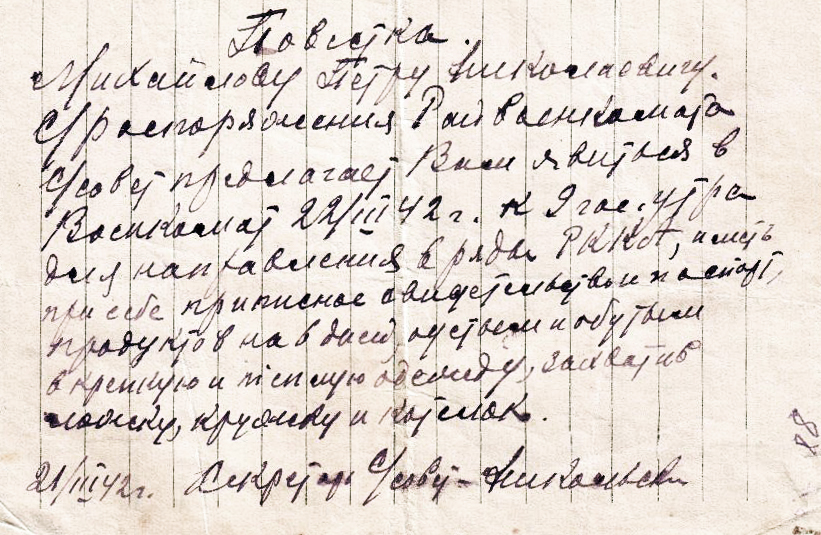 Повестка.
Михайлову Петру Николаевичу.
С/распоряжения Райвоенкомата
С/совет предлагает Вам явиться в
Военкомат 22/III 42 г. к 9 час. утра
для направления в ряды РККА, иметь
при себе приписное свидетельство и паспорт,
продуктов на 6 дней, одетым и обутым
в крепкую и теплую одежду, захватив
ложку, кружку и котелок.
21/III 42 г. Секретарь С/совет-
88